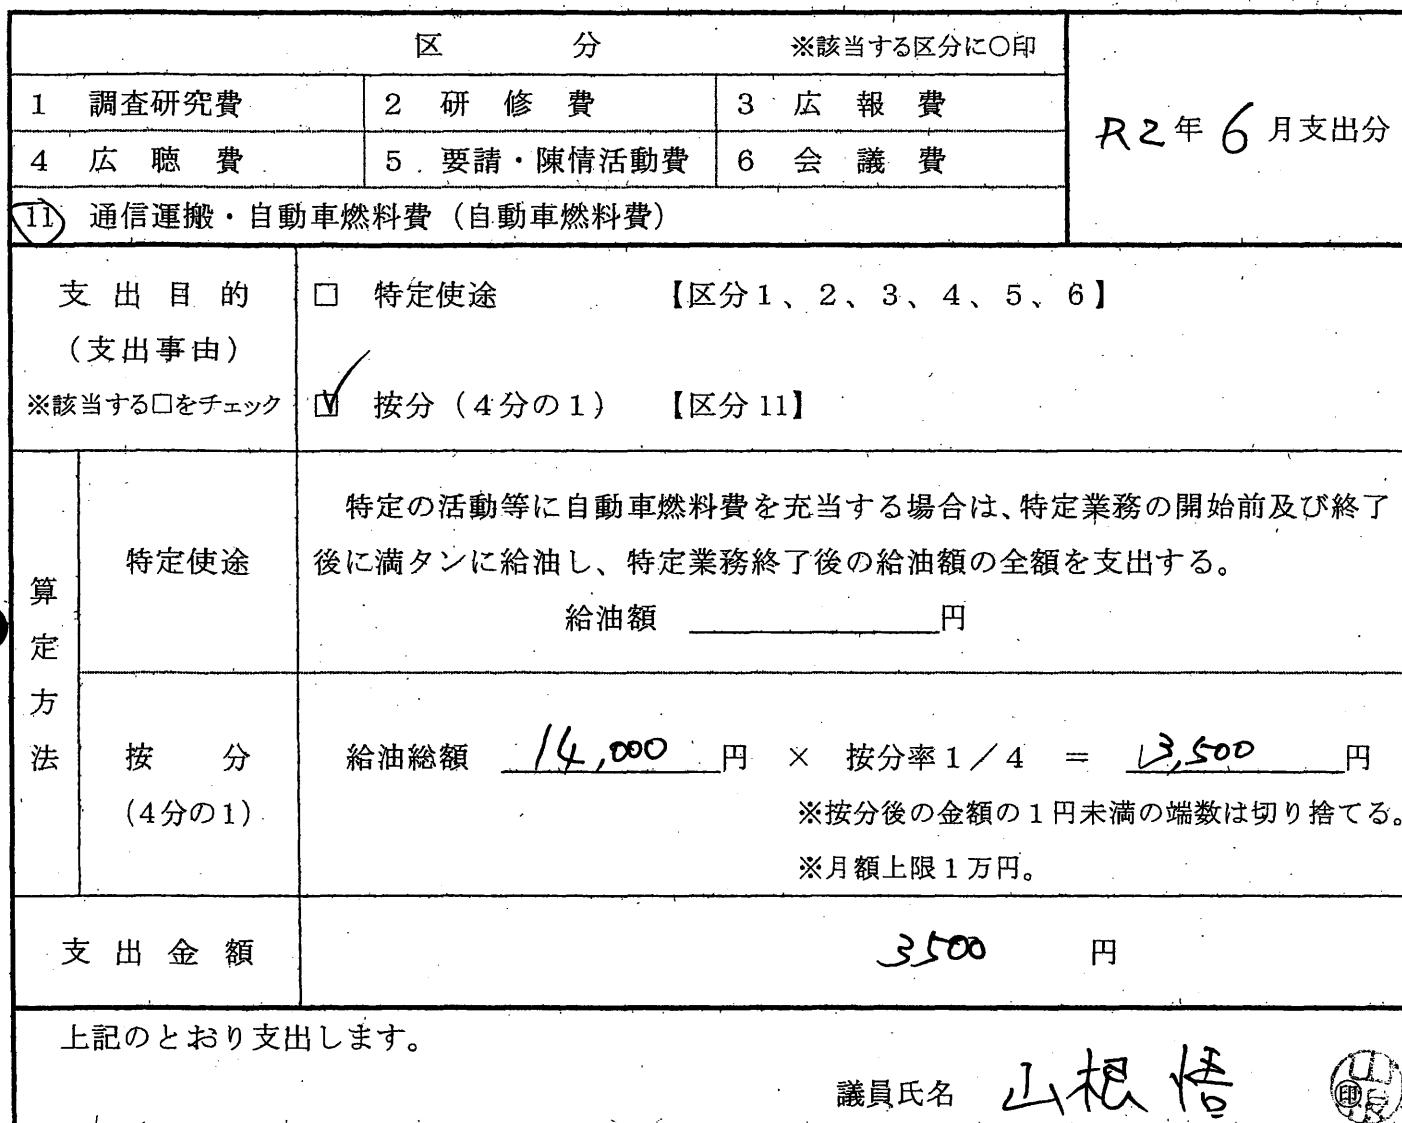 区 分 ※該当する区分に〇印
1 調査研究費 2 研修費 3 広報費
R2年6月支出分
4 広聴費 5 要請・陳情活動費 6 会議費
11 通信運搬・自動車燃料費（自動車燃料費）
支出目的
（支出事由）
※該当する□をチェック
□ 特定使途 【区分1、2、3、4、5、6】
☑ 按分（4分の1） 【区分11】
算定方法
特定使途
特定の活動等に自動車燃料費を充当する場合は、特定業務の開始前及び終了
後に満タンに給油し、特定業務終了後の給油額の全額を支出する。
給油額 円
按分
（4分の1）
給油総額 14,000 円 × 按分率1／4 ＝ 3,500 円
※按分後の金額の1円未満の端数は切り捨てる。
※月額上限1万円。
支出金額 3500 円
上記のとおり支出します。
議員氏名 山根 悟 印